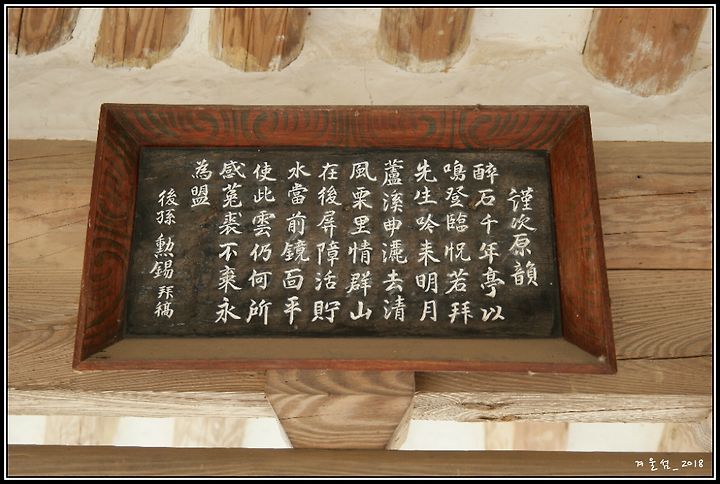 謹次原韻
醉石千年亭以
鳴登臨怳若拜
先生吟来明月
蘆溪曲灑去清
風栗里情群山
在後屏障活貯
水當前鏡面平
使此雲仍何所
感菟裘不棄永
為盟
後孫 勲錫 拜稿
겨울섬_2018